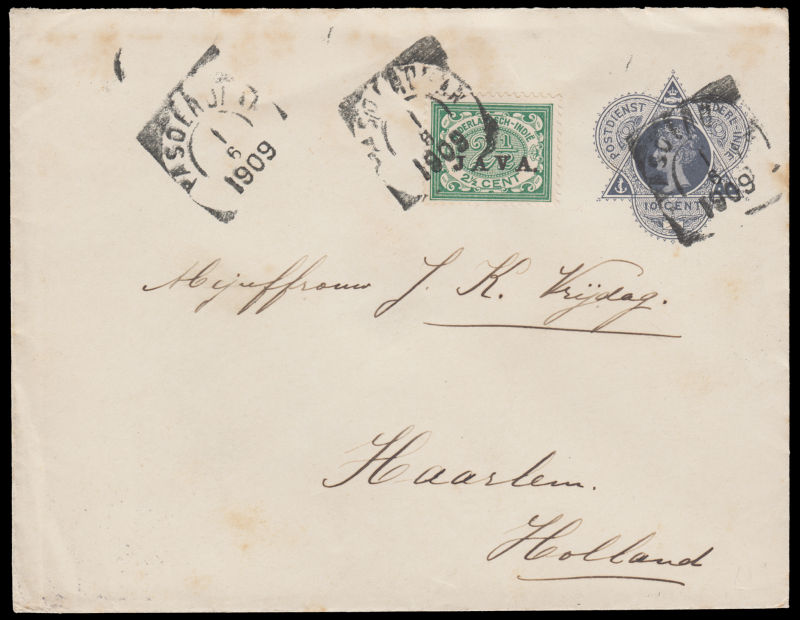 PASOEROEAN
1
6
1909
PASOEROEAN
1
6
1909
NEDERLANDSCH-INDIE
2½
JAVA.
2½ CENT
POSTDIENST
10 CENT
1909
Mejuffrouw J. K. Vrijdag.
Haarlem.
Holland